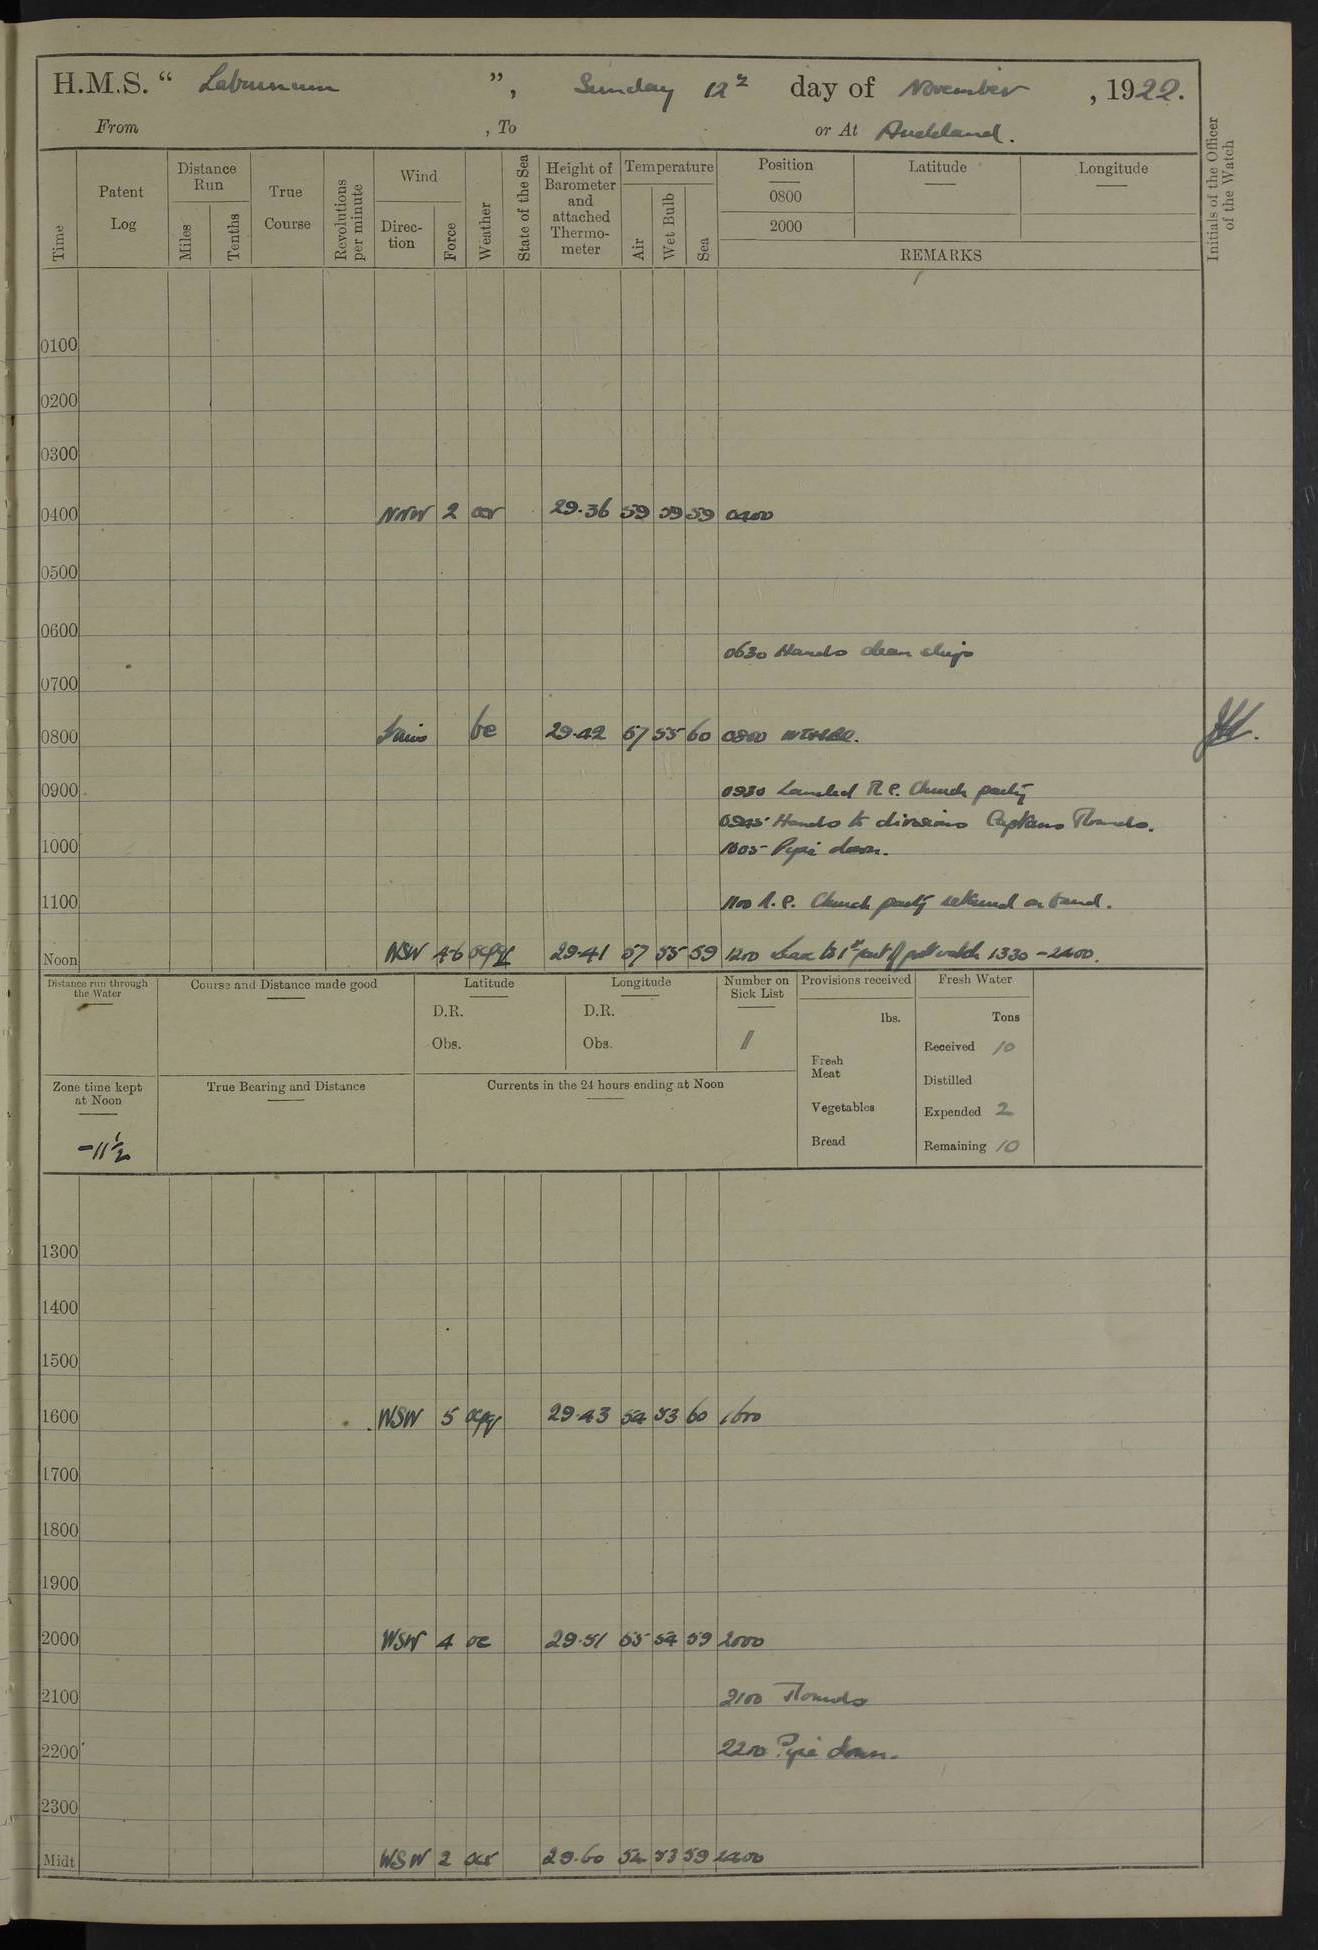 H.M.S. “ Laburnum ”, Sunday 12th day of November, 1922.
From , To or At Auckland.
Time
Patent Log
Distance Run
Miles
Tenths
True Course
Revolutions per minute
Wind
Direction
Force
Weather
State of the Sea
Height of Barometer and attached Thermometer
Temperature
Air
Wet Bulb
Sea
Position
0800
2000
Latitude
Longitude
REMARKS
Initials of the Officer of the Watch
0100
0200
0300
0400 NNW 2 ocr 29.36 59 59 59 0400
0500
0600
0630 Hands clean ship
0700
0800 bc 29.42 57 55 60 0800
0900
0930 Landed R.C. Church party
0945 Hands to divisions Captains Rounds.
1000
1005 Pipe down.
1100
1100 R.C. Church party returned on board.
Noon WSW 4-6 ocpq 29.41 57 55 59 1200 Leave to 1st part of port watch 1330 - 2400.
Distance run through the Water
Course and Distance made good
Latitude
D.R.
Obs.
Longitude
D.R.
Obs.
Number on Sick List
11
Provisions received
lbs.
Fresh Meat
Vegetables
Bread
Fresh Water
Tons
Received 10
Distilled
Expended 2
Remaining 10
Zone time kept at Noon
-11½
True Bearing and Distance
Currents in the 24 hours ending at Noon
1300
1400
1500
1600 WSW 5 ocpq 29.43 54 53 60 1600
1700
1800
1900
2000 WSW 4 oc 29.51 55 54 59 2000
2100 2100 Rounds
2200 2200 Pipe down.
2300
Midt WSW 2 ocr 29.60 54 53 59 2400